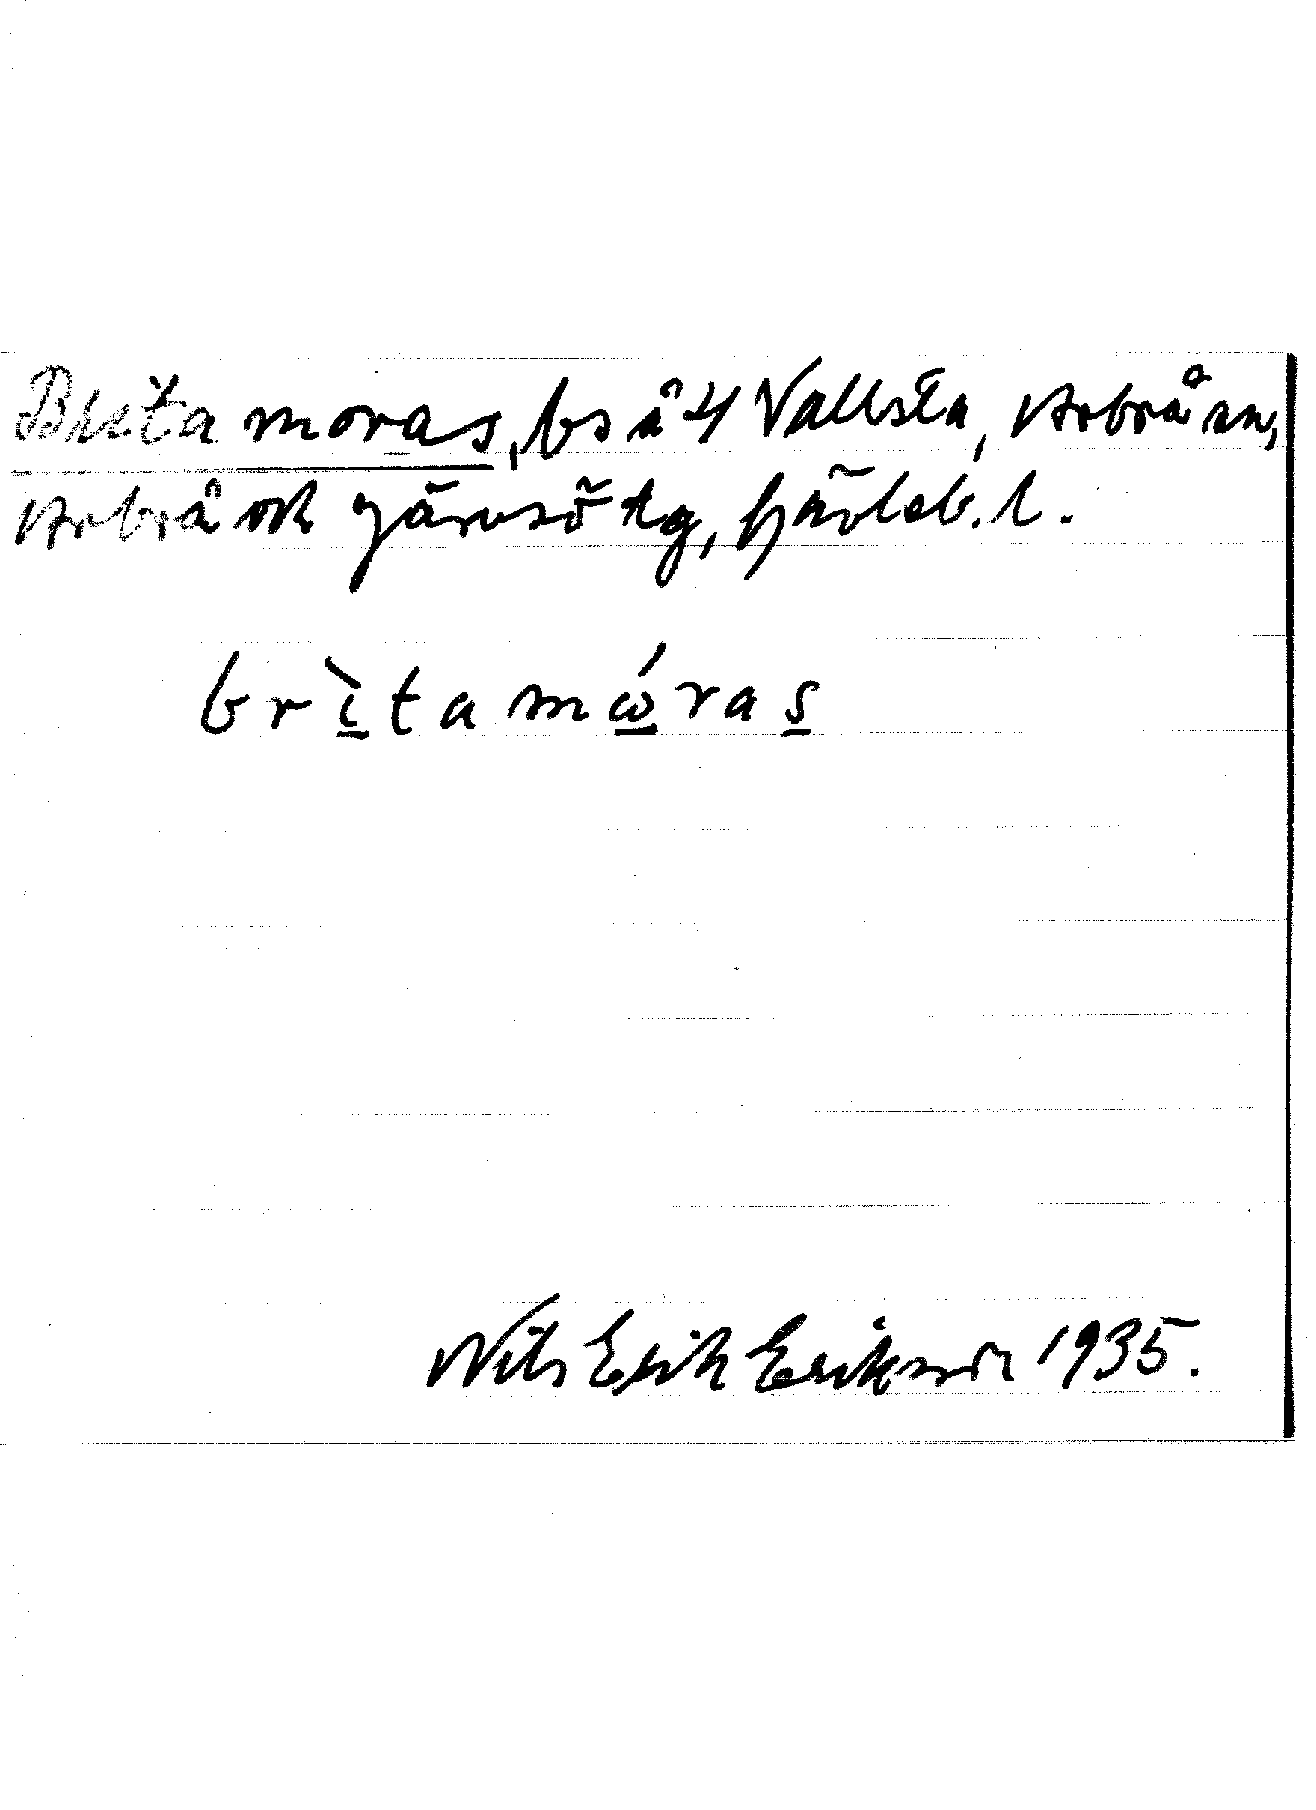 Brita moras, bs å 4 Vallsta, Arbrå sn,
Arbrå och Järvsö tg, Gävleb. l.
brìtamώras
Nils Erik Erikson 1935.